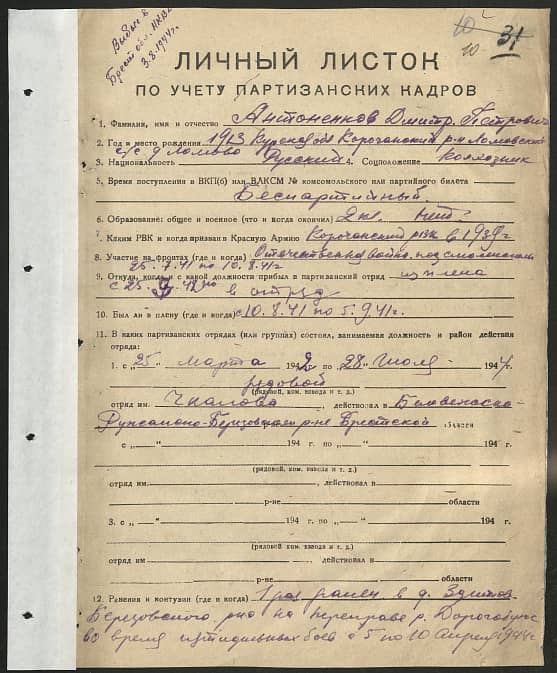 Выбыл в
Брест. обл. НКВД
3.8.1944г.
10 31
10
ЛИЧНЫЙ ЛИСТОК
ПО УЧЕТУ ПАРТИЗАНСКИХ КАДРОВ
1. Фамилия, имя и отчество Антоненков Дмитр. Петрович
2. Год и место рождения 1913 Курской обл Корочанский р-н Ломовский
с/с д Ломово
3. Национальность Русский 4. Соцположение Колхозник
5. Время поступления в ВКП(б) или ВЛКСМ № комсомольского или партийного билета
Беспартийный.
6. Образование: общее и военное (что и когда окончил) 2 кл. Нет.
7. Каким РВК и когда призван в Красную Армию Корочанский РВК в 1939г
8. Участие на фронтах (где и когда) Отечественна война, под смоленском
25.7.41 по 10.8.41г
9. Откуда, когда и с какой должности прибыл в партизанский отряд из плена
с 25. 42го в отряд
10. Был ли в плену (где и когда) с 10.8.41 по 5.9.41г.
11. В каких партизанских отрядах (или группах) состоял, занимаемая должность и район действия
отряда:
1. с „25 марта 1942 по 28 июля 1944г.
рядовой
(рядовой, ком. взвода и т. д.)
отряд им. Чкалова, действовал в
Березовском р-не Брестской области
с „—“ 194 г. по „—“ 194 г.
(рядовой, ком. взвода и т. д.)
отряд им. , действовал в
р-не области
3. с „—“ 194 г. по „—“ 194 г.
(рядовой, ком. взвода и т. д.)
отряд им. , действовал в
р-не области
12. Ранения и контузии (где и когда) 1 раз ранен в д. Здитов
Березовского р-на на переправе р. Дорогобуж
во время боев с 5 по 10 Апреля 1944г.